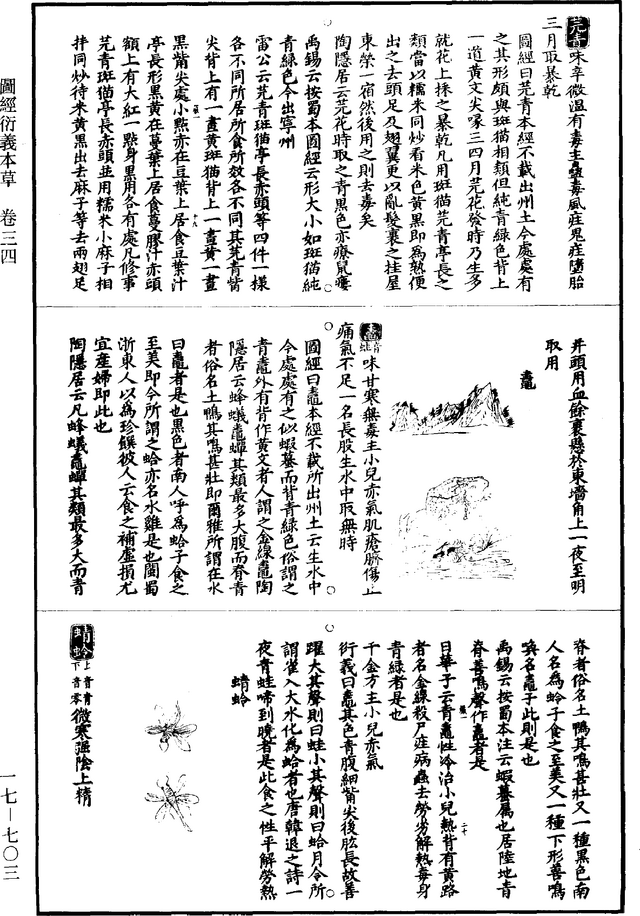 芫青味辛微温有毒主蠱毒風疰鬼疰墮胎
三月取暴乾
圖經曰芫青本經不載出州土今處處有
之其形頗與斑猫相類但純青綠色背上
一道黃文尖喙三四月芫花發時乃生多
就花上採之暴乾凡用斑猫芫青亭長之
類當以糯米同炒看米色黃黑即為熟便
出之去頭足及翅翼更以亂髮裹之挂屋
東榮一宿然後用之則去毒矣
陶隱居云芫花時取之青黑色亦療鼠瘻
禹錫云按蜀本圖經云形大小如斑猫純
青綠色今出寧州
雷公云芫青斑猫亭長赤頭等四件一樣
各不同所居所食所效各不同其芫青觜
尖背上有一畫黃斑猫背上一畫黃一畫
黑觜尖處小點赤在豆葉上居食豆葉汁
亭長形黑黃在蔓葉上居食蔓膠汁赤頭
額上有大紅一點身黑用各有處凡修事
芫青斑猫亭長赤頭並用糯米小麻子相
拌同炒待米黃黑出去麻子等去兩翅足
并頭用血餘裹懸於東墻角上一夜至明
取用
鼃
鼃味甘寒無毒主小兒赤氣肌瘡臍傷止
痛氣不足一名長股生水中取無時
圖經曰鼃本經不載所出州土云生水中
今處處有之似蝦蟇而背青綠色俗謂之
青鼃外有背作黃文者人謂之金線鼃陶
隱居云蜂蟻鼃蟬其類最多大腹而脊青
者俗名土鴨其鳴甚壯即爾雅所謂在水
曰鼃者是也黑色者南人呼為蛤子食之
至美即今所謂之蛤亦名水雞是也閩蜀
浙東人以為珍饌彼人云食之補虛損尤
宜產婦即此也
陶隱居云凡蜂蟻鼃蟬其類最多大而青
脊者俗名土鴨其鳴甚壯又一種黑色南
人名為蛤子食之至美又一種下形善鳴
喚名鼃子此則是也
禹錫云按蜀本注云蝦蟇屬也居陸地青
脊善鳴聲作鼃者是
日華子云青鼃性冷治小兒熱背有黃路
者名金線殺尸疰病蟲去勞劣解熱毒身
青綠者是也
千金方主小兒赤氣
衍義曰鼃其色青腹細觜尖後肱長故善
躍大其聲則曰蛙小其聲則曰蛤月令所
謂雀入大水化為蛤者也唐韓退之詩一
夜青蛙啼到曉者是此食之性平解勞熱
蜻蛉
蜻蛉上音青下音零微寒強陰止精
圖經衍義本草 卷三四
一七—七〇三